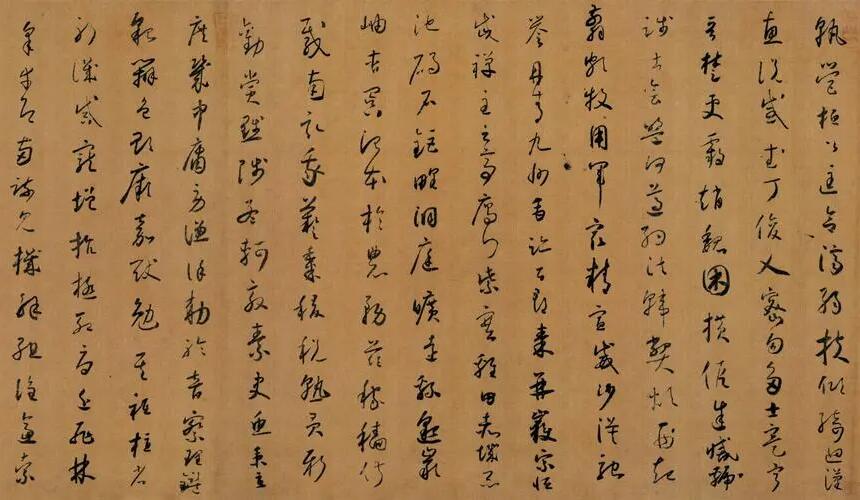 孰營桓公匡合濟弱扶傾綺迴漢
惠說感武丁俊乂密勿多士寔寧
晉楚更霸趙魏困橫假途滅虢
踐土會盟何遵約法韓弊煩刑起
翦頗牧用軍最精宣威沙漠馳
譽丹青九州禹跡百郡秦并嶽宗恒
岱禪主云亭雁門紫塞雞田赤城昆
池碣石鉅野洞庭曠遠綿邈巖
岫杳冥治本於農務茲稼穡俶
載南畝我藝黍稷稅熟貢新
勸賞黜陟孟軻敦素史魚秉直
庶幾中庸勞謙謹敕聆音察理鑑
貌辨色貽厥嘉猷勉其祗植省
躬譏誡寵增抗極殆辱近恥林
皋幸即兩疏見機解組誰逼索